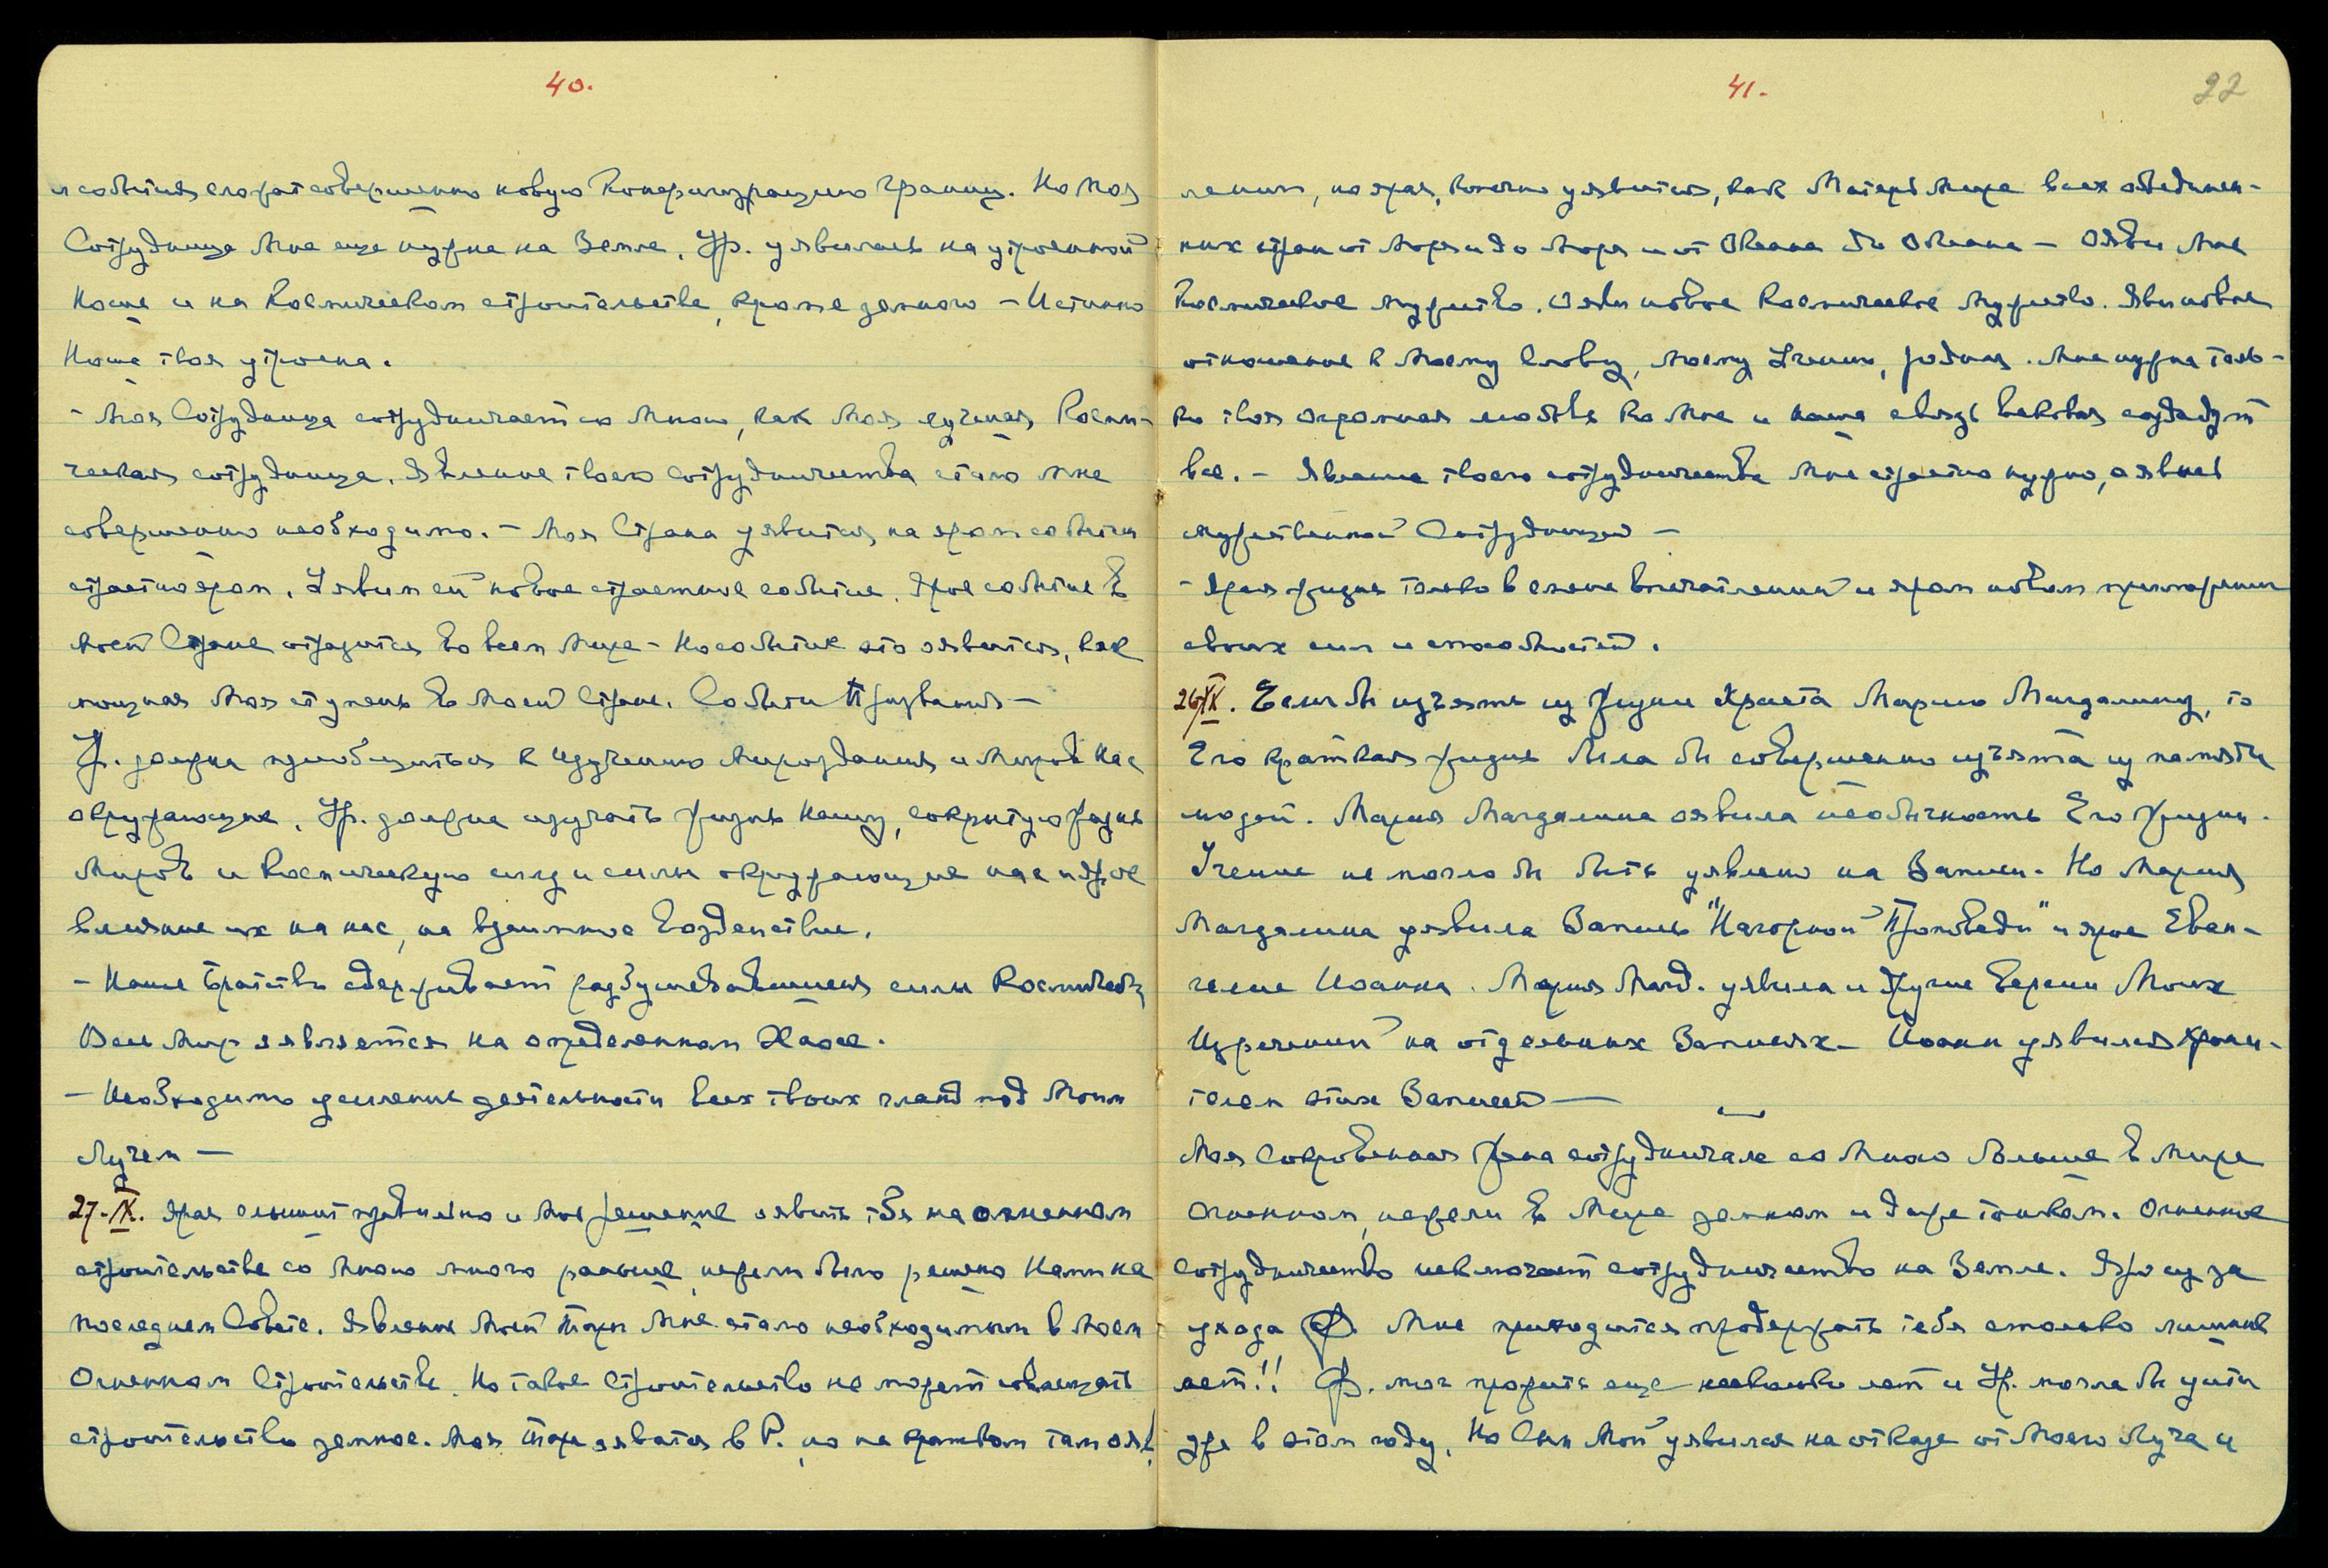 40.
и события создат совершенно новую конфигурацию границ. Но Моя
Сотрудница Мне еще нужна на Земле. Ур. уявилась на утроенной
Ноше и на Космическом строительстве, кроме земного — Истинно
Ноша твоя утроена.
- Моя Сотрудница сотрудничает со Мною, как Моя лучшая Косми-
ческая сотрудница. Явление твоего сотрудничества стало мне
совершенно необходимо. - Моя Страна уявится на яром событии
страстно яром. Уявим ей новое страстное событие. Ярое событие в
Моей Стране отразится во всем Мире - Но событие это оявится, как
мощная Моя ступень в Моей Стране. События Призвания —
Ур. должна приобщиться к изучению Мироздания и Миров Нас
окружающих. Ур. должна изучать жизнь Нашу, сокрытую жизнь
Миров и Космическую и силы окружающие нас и ярое
влияние их на нас, на взаимное воздействие.
- Наше Братство сдерживает разбушевавшиеся силы Космические
Весь Мир является на определенном Хаосе.
- Необходимо усиление деятельности всех твоих гланд под Моим
Лучем —
27-IX. Ярая слышит правильно и Мое решение оявить тебя на огненном
строительстве со Мною много раньше, нежели было решено Нами на
последнем Совете. Явление Моей Тары Мне стало необходимым в Моем
Огненном Строительстве. Но такое Строительство не может совмещать
строительство земное. Моя Тара оявится в Р., но на кратком там ояв.
41.
22
лении, но ярая, конечно уявится, как Матерь Мира всех объединен-
ных стран от Моря и до Моря и от Океана до Океана — Ояви Мне
Космическое мужество. Ояви новое Космическое мужество. Яви новое
отношение к Моему Слову, Моему Учению, родная. Мне нужна толь-
ко твоя огромная любовь ко Мне и наша связь вековая создадут
все. - Явление твоего сотрудничества Мне страстно нужно, оявись
мужественной Сотрудницей —
- Ярая жизнь только в смене впечатлений и яром новом приложении
своих сил и способностей.
26/IX. Если бы изъять из жизни Христа Марию Магдалину, то
Его краткая жизнь была бы совершенно изъята из памяти
людей. Мария Магдалина оявила необычность Его жизни.
Учение не могло бы быть уявлено на Записи. Но Мария
Магдалина уявила Запись "Нагорной Проповеди" и ярое Еван-
гелие Иоанна. Мария Магд. уявила и другие Версии Моих
Изречений на отдельных Записях - Иоанн уявился храни-
телем этих Записей —
Моя Сокровенная Жена сотрудничала со Мною больше в Мире
Огненном, нежели в Мире земном и даже тонком. Огненное
сотрудничество исключает сотрудничество на Земле. Яро из за
ухода Ф. Мне приходится продержать тебя столько лишних
лет!! Ф. мог прожить еще несколько лет и Ур. могла бы уйти
уже в этом году. Но Сын Мой уявился на отказе от Моего Луча и